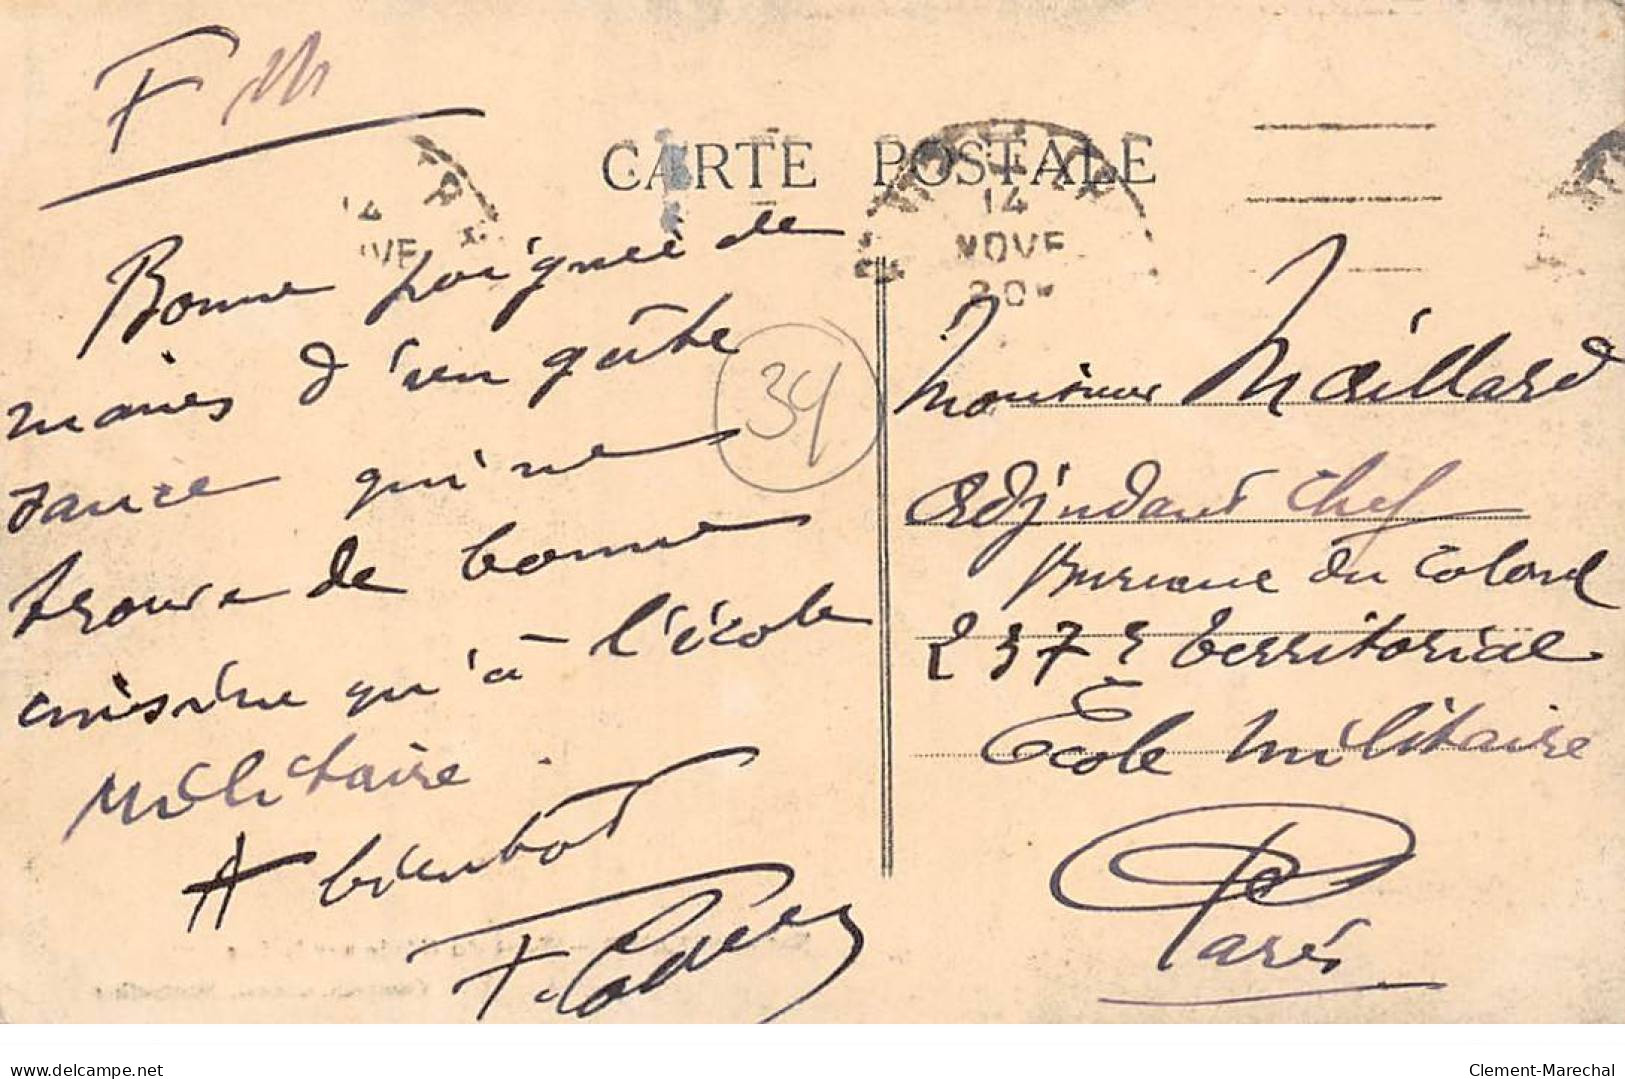 F M
CARTE POSTALE
14
NOVE
Bonne poignée de
mains d'un gâte
sauce qui ne
trouve de bonne
cuisine qu'à l'école
Militaire.
A bientot
F.
34
Monsieur Maillard
Adjudant Chef
Bureau du Colonel
237e territorial
Ecole militaire
Paris
www.delcampe.net
Clement-Marechal